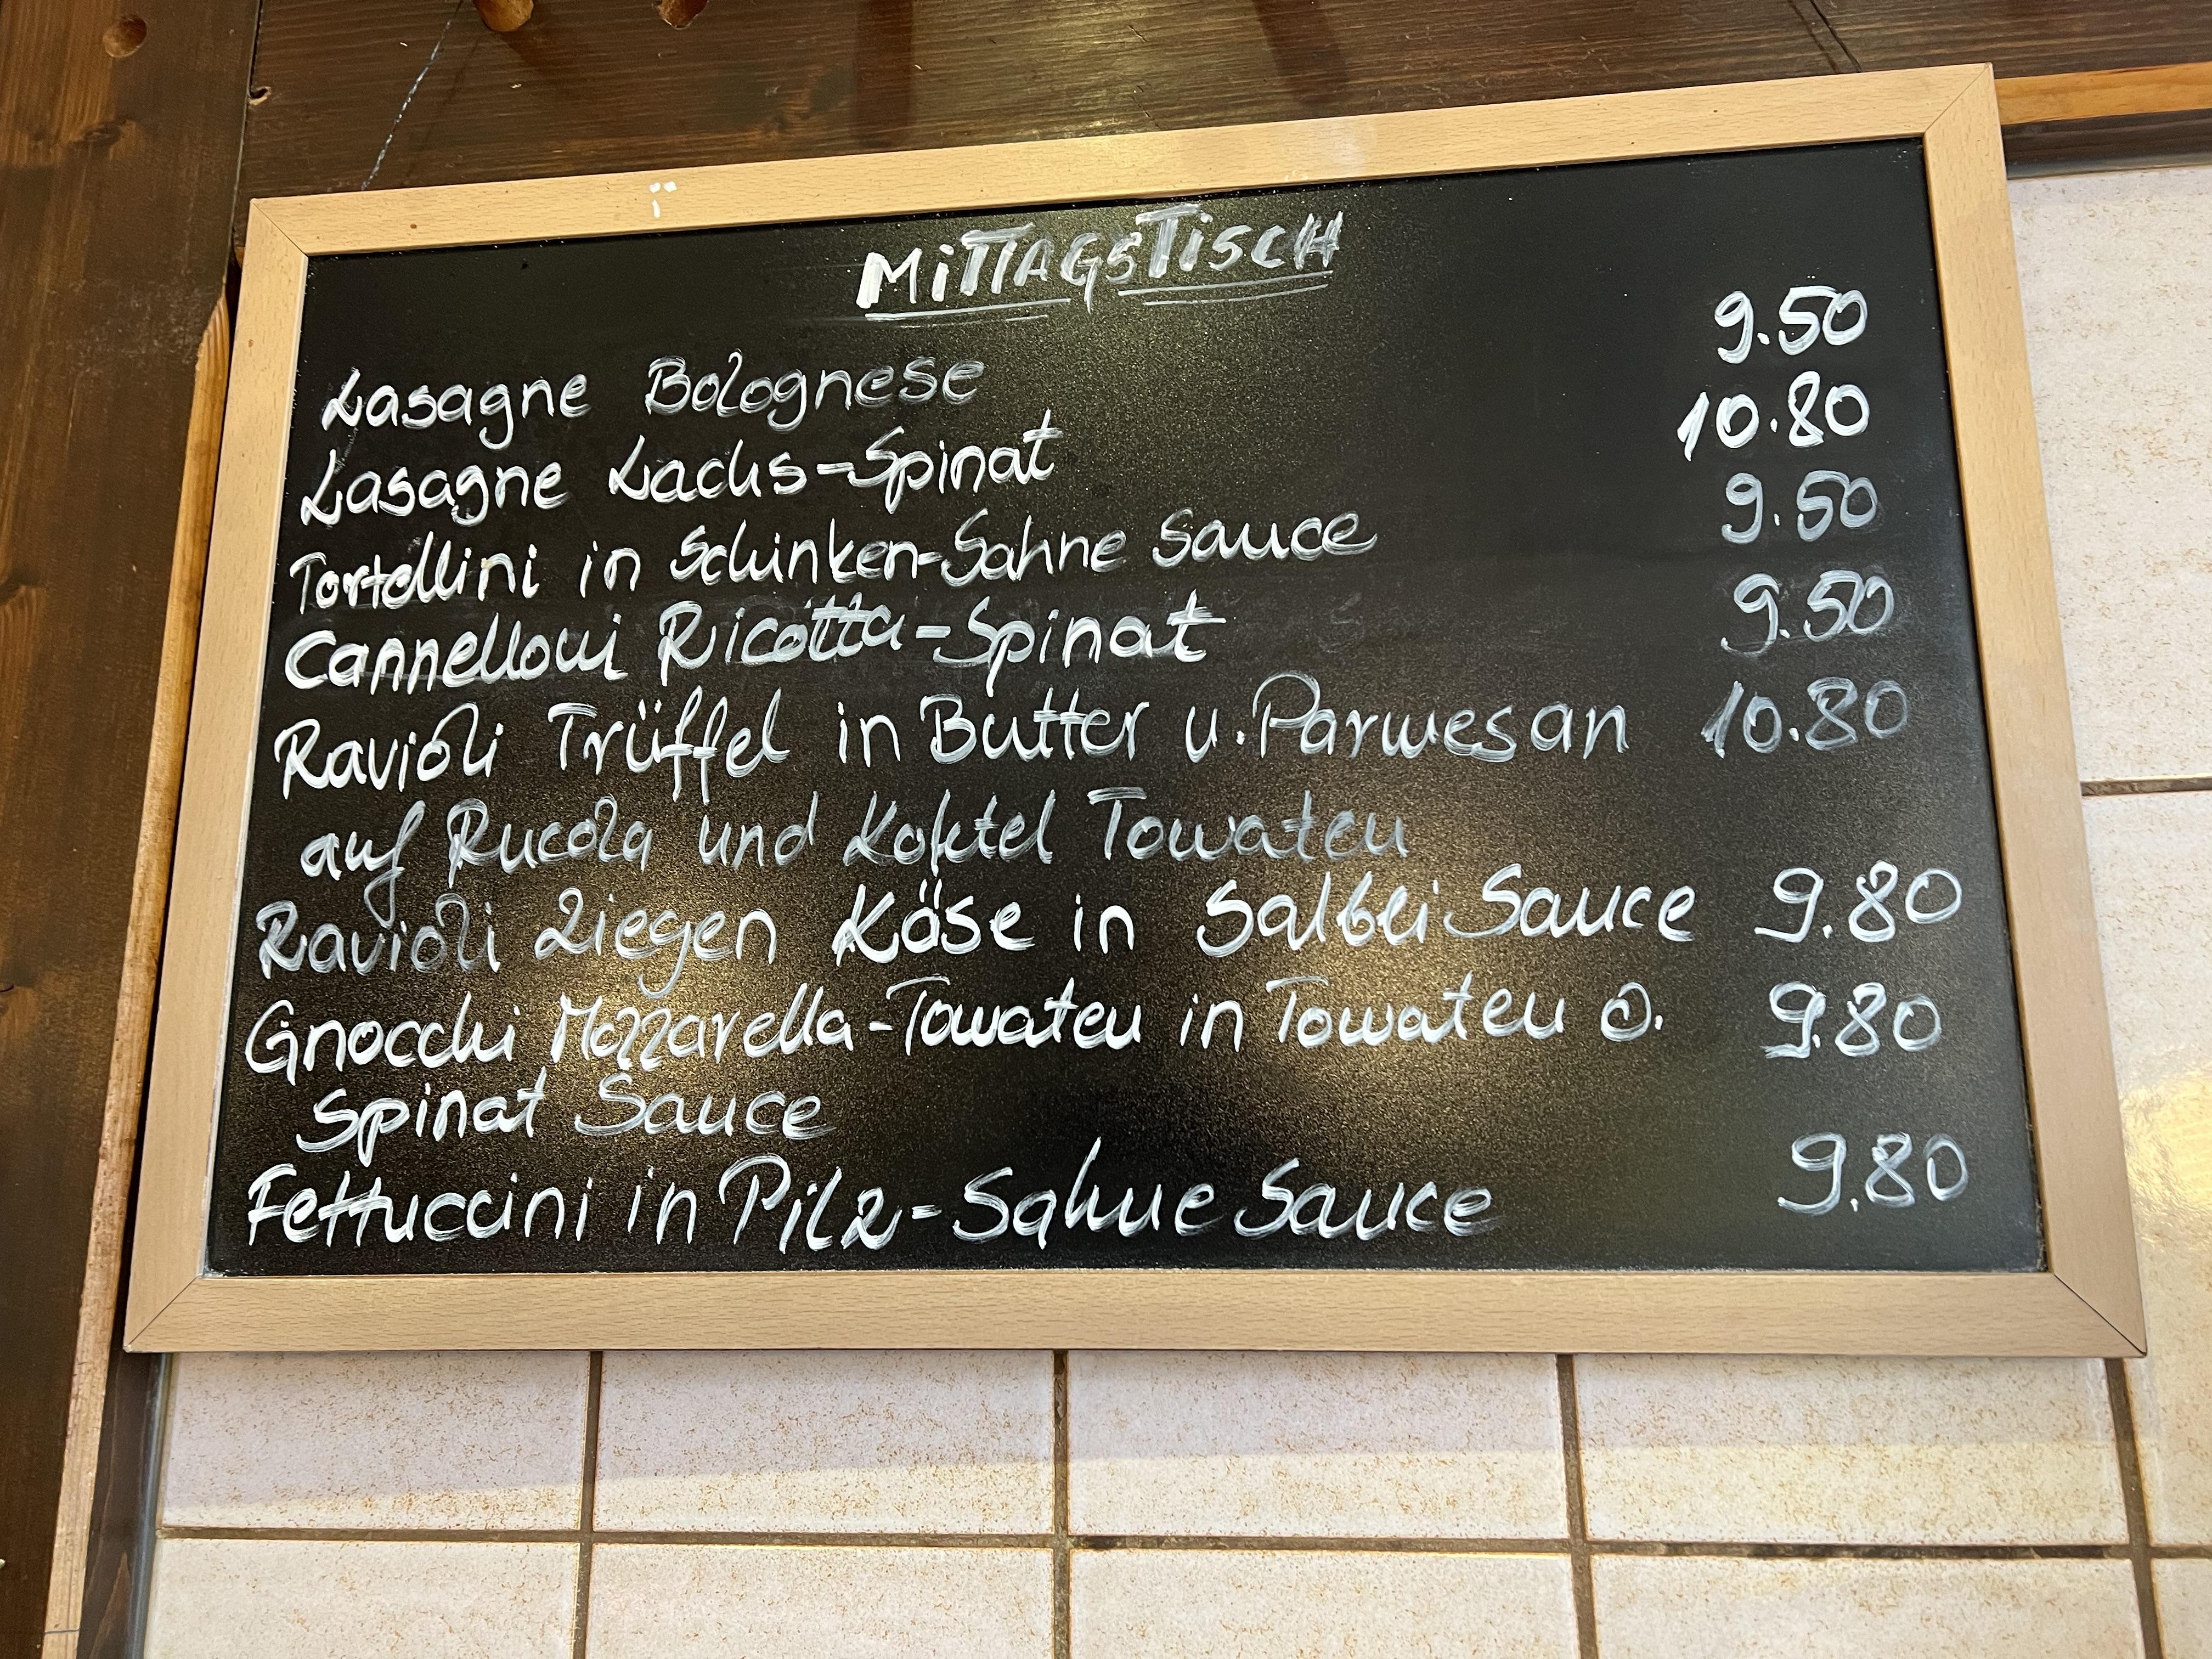 MITTAGSTISCH
Lasagne Bolognese 9.50
Lasagne Lachs-Spinat 10.80
Tortellini in Schinken-Sahne Sauce 9.50
Cannelloni Ricotta-Spinat 9.50
Ravioli Trüffel in Butter u. Parmesan 10.80
auf Rucola und Koktel Tomaten
Ravioli Ziegen Käse in Salbei Sauce 9.80
Gnocchi Mozzarella-Tomaten in Tomaten o. 9.80
Spinat Sauce
Fettuccini in Pilz-Sahne Sauce 9.80